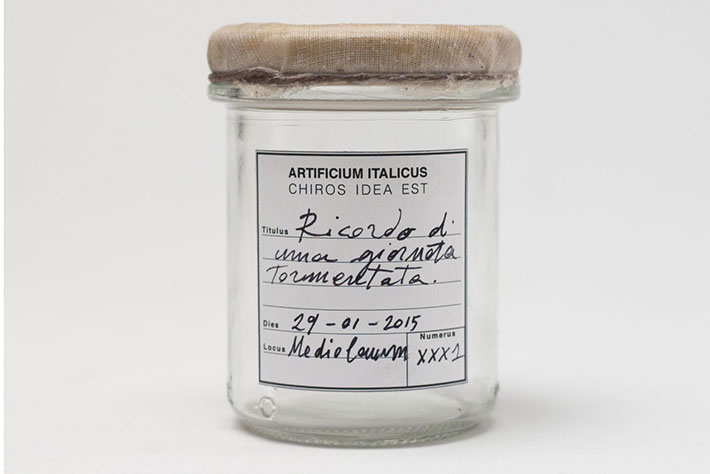 ARTIFICIUM ITALICUS
CHIROS IDEA EST
Titulus Ricordo di
una giornata
tormentata.
Dies 29-01-2015
Numerus
Locus Mediolanum XXX1